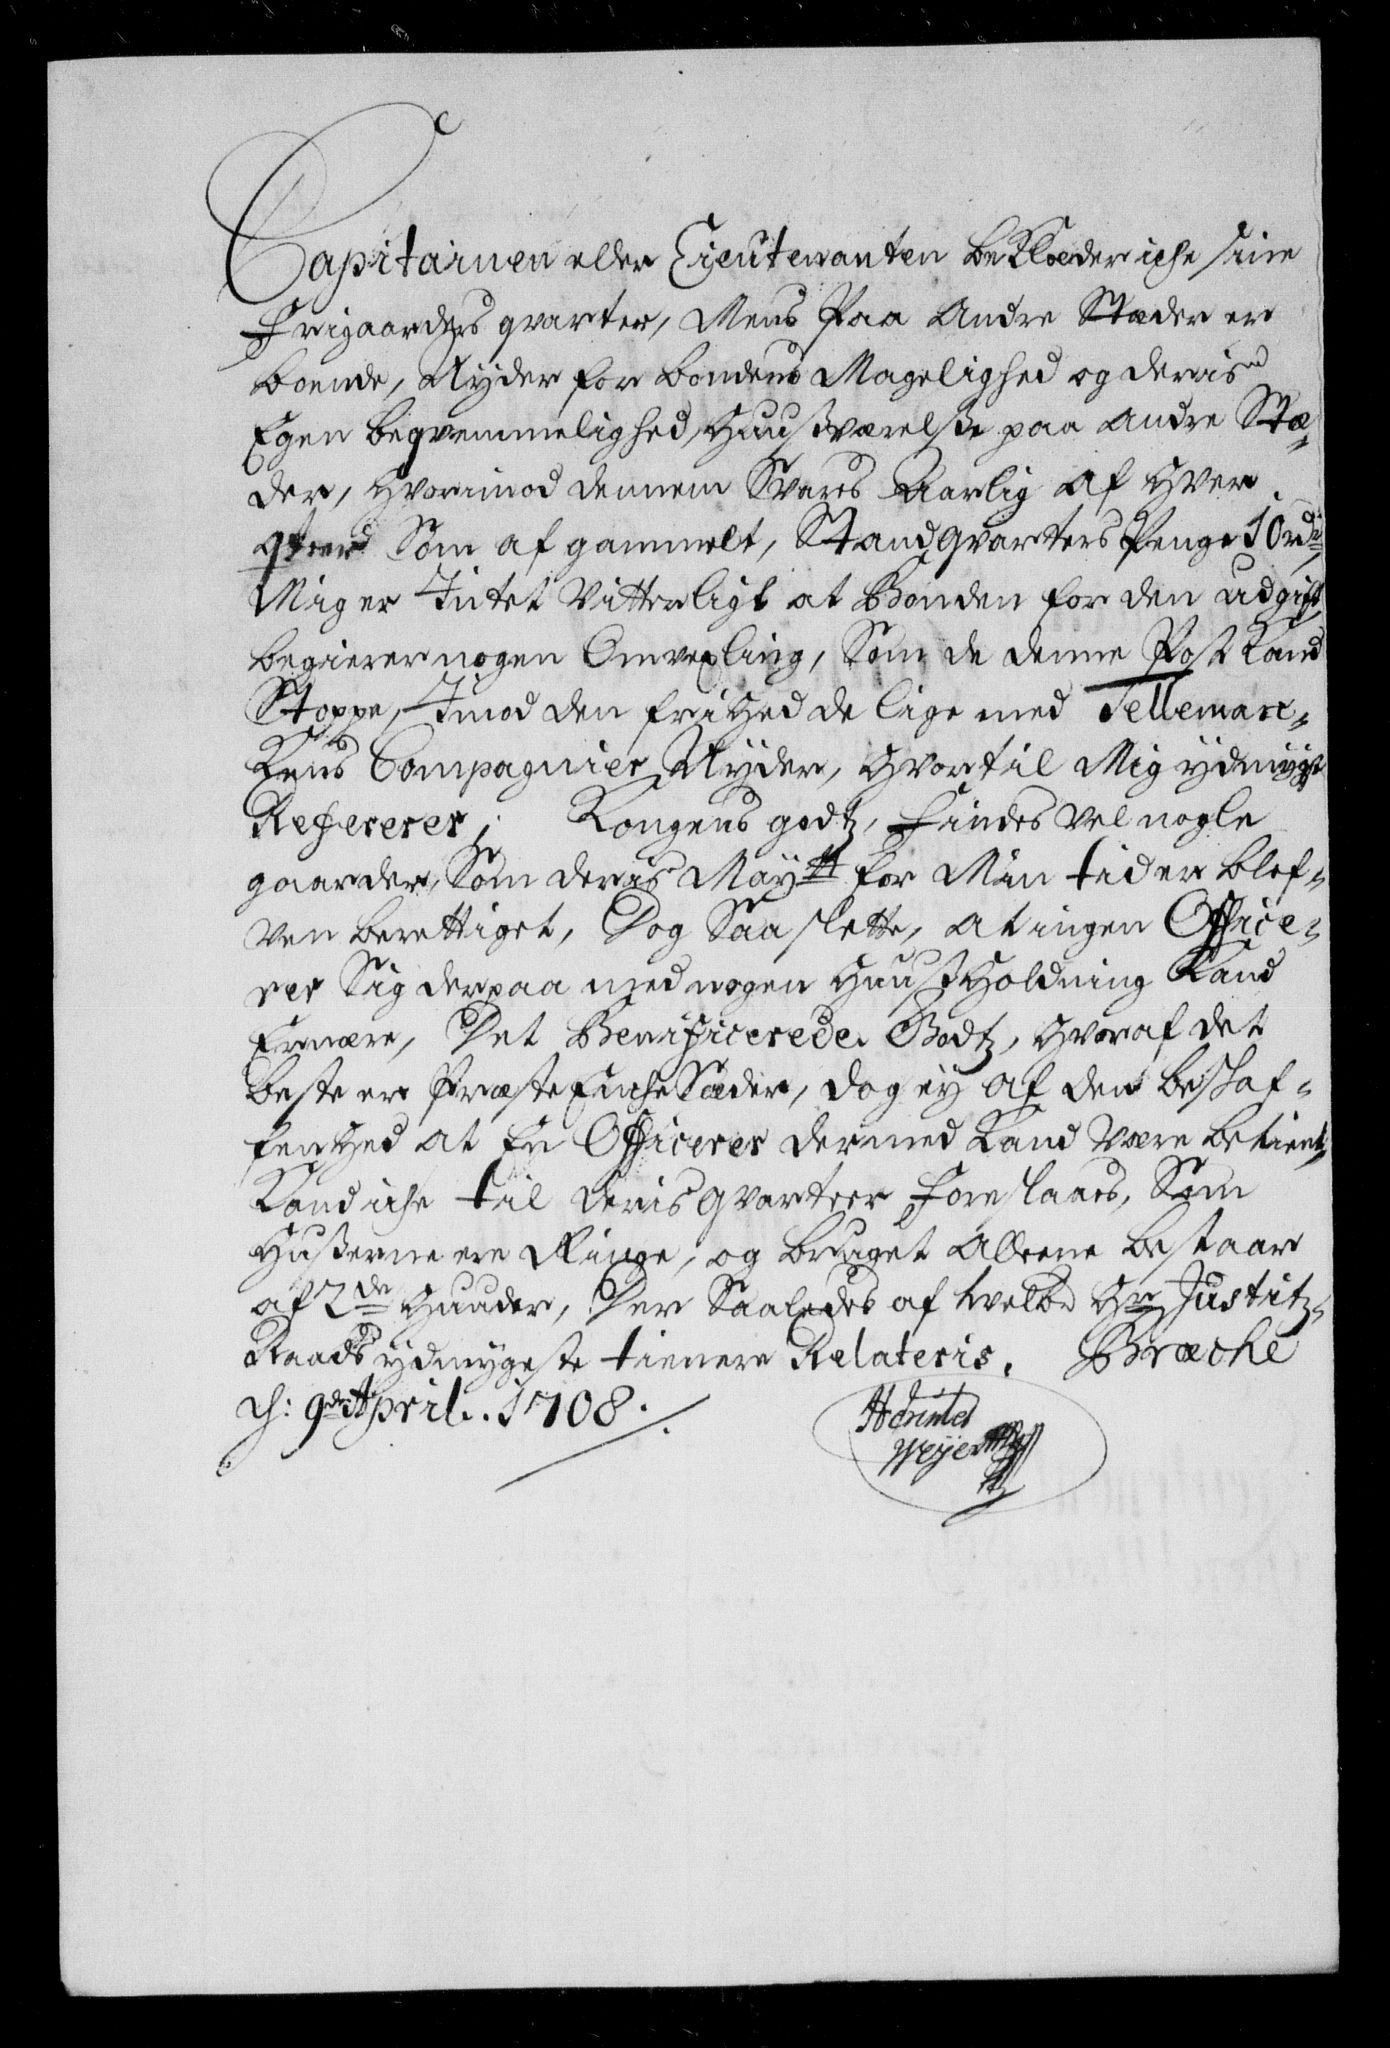 Capitainen eller Lieutenanten beKlæder iche sine
Frigaarders qvarter, Mens Paa Andre Stæder er
boende, Nyder for bondens Magelighed og deris
Egen beqvemmelighed, Huusværelße paa andre Stæ-
der, Hvorimod dennem Svares Aarlig af Hver
Som af gammelt, Standqvarters Penge 10 rd.
Mig er Intet Vitterligt at Bonden for den udgift
begierer nogen Omvexling, Som de denne Post Kand
Stoppe, Imod den friHed de lige med Tellemarc-
Kens Compagnier Nyder, Hvortil Mig ydmygst
Refererer; Kongens godtz, Findes Vel nogle
gaarder, Som deris Mayst for Min tid er blef-
ven berettiget, Dog Saa slette, at ingen Office-
rer Sig derpaa med nogen HuusHoldning Kand
Ernære, Det Benificerede Godtz, Hvoraf det
beste er PræsteEncheSæder, dog ey af den beskaf-
fenHed at En Officerer dermed Kand Være betient,
Kand iche til deris qvarteer Foreslaaes, Som
Hußerne ere Ringe, og bruget Alleene bestaar
af 2de Huuder, Der Saaledes af Welbe Hr Justitz-
Raads ydmygeste tienere Relateris. Bræche
d: 9de April. 1708.
Weyer